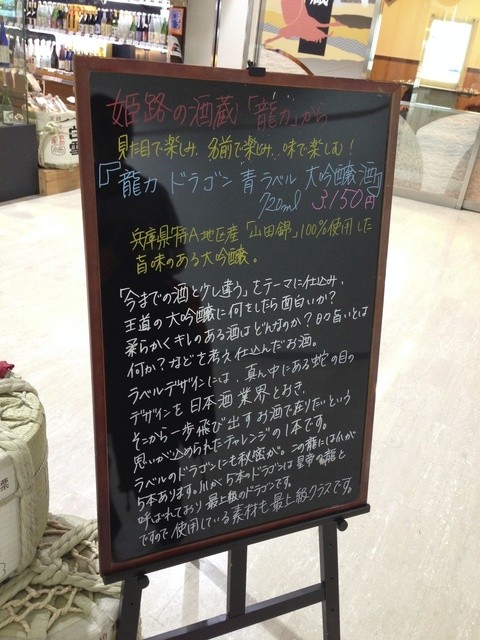 姫路の酒蔵「龍力」から
見た目で楽しみ、名前で楽しみ、味で楽しむ!
『龍力 ドラゴン 青ラベル 大吟醸酒』
720ml 3,150円
兵庫県特A地区産「山田錦」100%使用した
旨味のある大吟醸。
「今までの酒と少し違う」をテーマに仕込み、
王道の大吟醸に何をしたら面白いか?
柔らかくキレのある酒はどんなのか?日々旨いとは
何か?などを考え仕込んだお酒。
ラベルデザインには、真ん中にある蛇の目の
デザインを日本酒業界とおき、
そこから一歩飛び出すお酒で在りたいという
思いが込められたチャレンジの1本です。
ラベルのドラゴンにも秘密が。この龍には爪が
5本あります。爪が5本のドラゴンは皇帝龍と
呼ばれており最上級のドラゴンです。
ですので使用している素材も最上級クラスです。
白雪
蔵